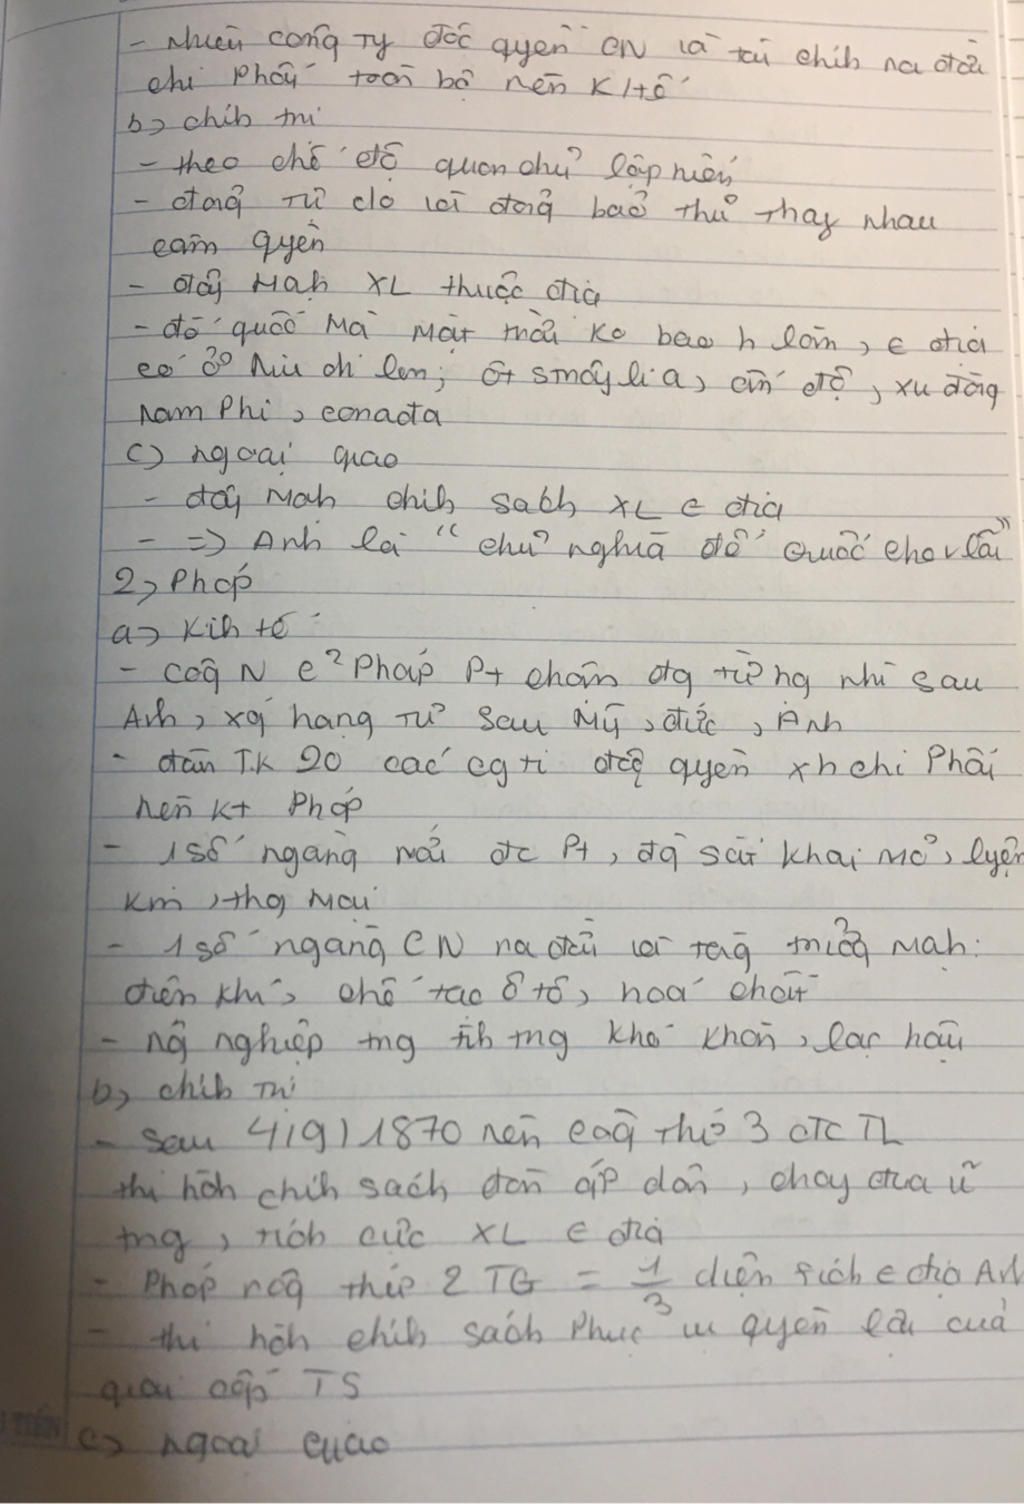 - Nhiều công ty độc quyền CN và tài chíh ra đời
chi phối toàn bộ nền K/tế
b, chíh trị
- theo chế độ quân chủ lập hiến
- đảng Tự do và đảng bảo thủ thay nhau
cầm quyền
- đẩy Mạh XL thuộc địa
- đế quốc Mà Mặt trời ko bao h lặn, € địa
có ở Niu di len, Ôt smây li a, ấn độ, xu đăng
Nam Phi, canada
c) ngoại giao
- đẩy Mạh chíh sách XL € địa
- => Anh là " chủ nghĩa đế quốc cho vay lãi "
2, Pháp
a, Kih tế
- côg N c² Pháp Pt chậm đg từ hg nhì sau
Anh, xg hàng Tư sau Mỹ, đức, Anh
- đầu TK 20 các cg ti độc quyền xh chi Phối
nền kt Pháp
- 1 số ngàng mới đc Pt, đg sắt khai mỏ, lyện
kim, thg Mại
- 1 số ngàng CN ra đời và tăng trưởg Mạh:
điện khí, chế tạo ô tô, hoá chất
- nô nghiệp tng tìh tng khó khăn, lạc hậu
b, chíh trị
- sau 4/9/1870 nền cộg thứ 3 đc TL
thi hàh chíh sách đàn áp dân, chạy đua ũ
tng, tích cực XL € địa
- Pháp rộg thứ 2 TG = 1/3 diện tích € địa Anh
- thi hàh chíh sách Phục vụ quyền lợi của
giai cấp TS
c, ngoại giao